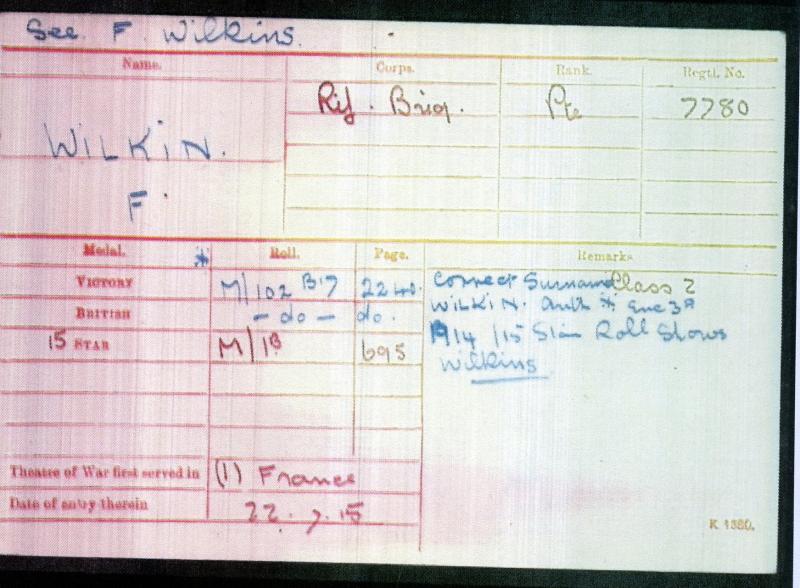 See F. Wilkins.
Name. Corps. Rank. Regtl. No.
Rif. Brig. Pte 7780
WILKIN.
F.
Medal. * Roll. Page. Remarks
VICTORY M/102 B17 2240. Correct Surname Class Z
BRITISH - do - do. WILKIN. Auth *
15 STAR M/1B 695 1914/15 Star Roll Shows
Wilkins
Theatre of War first served in (1) France
Date of entry therein 22.7.15
K 1380.